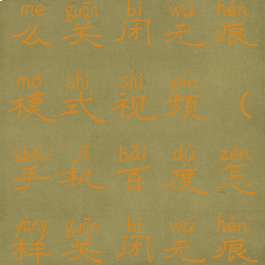 me guān bì wú hén
么关闭无痕
mó shì shì pín
模式视频(
shǒu jī bǎi dù zěn
手机百度怎
yàng guān bì wú hén
样关闭无痕